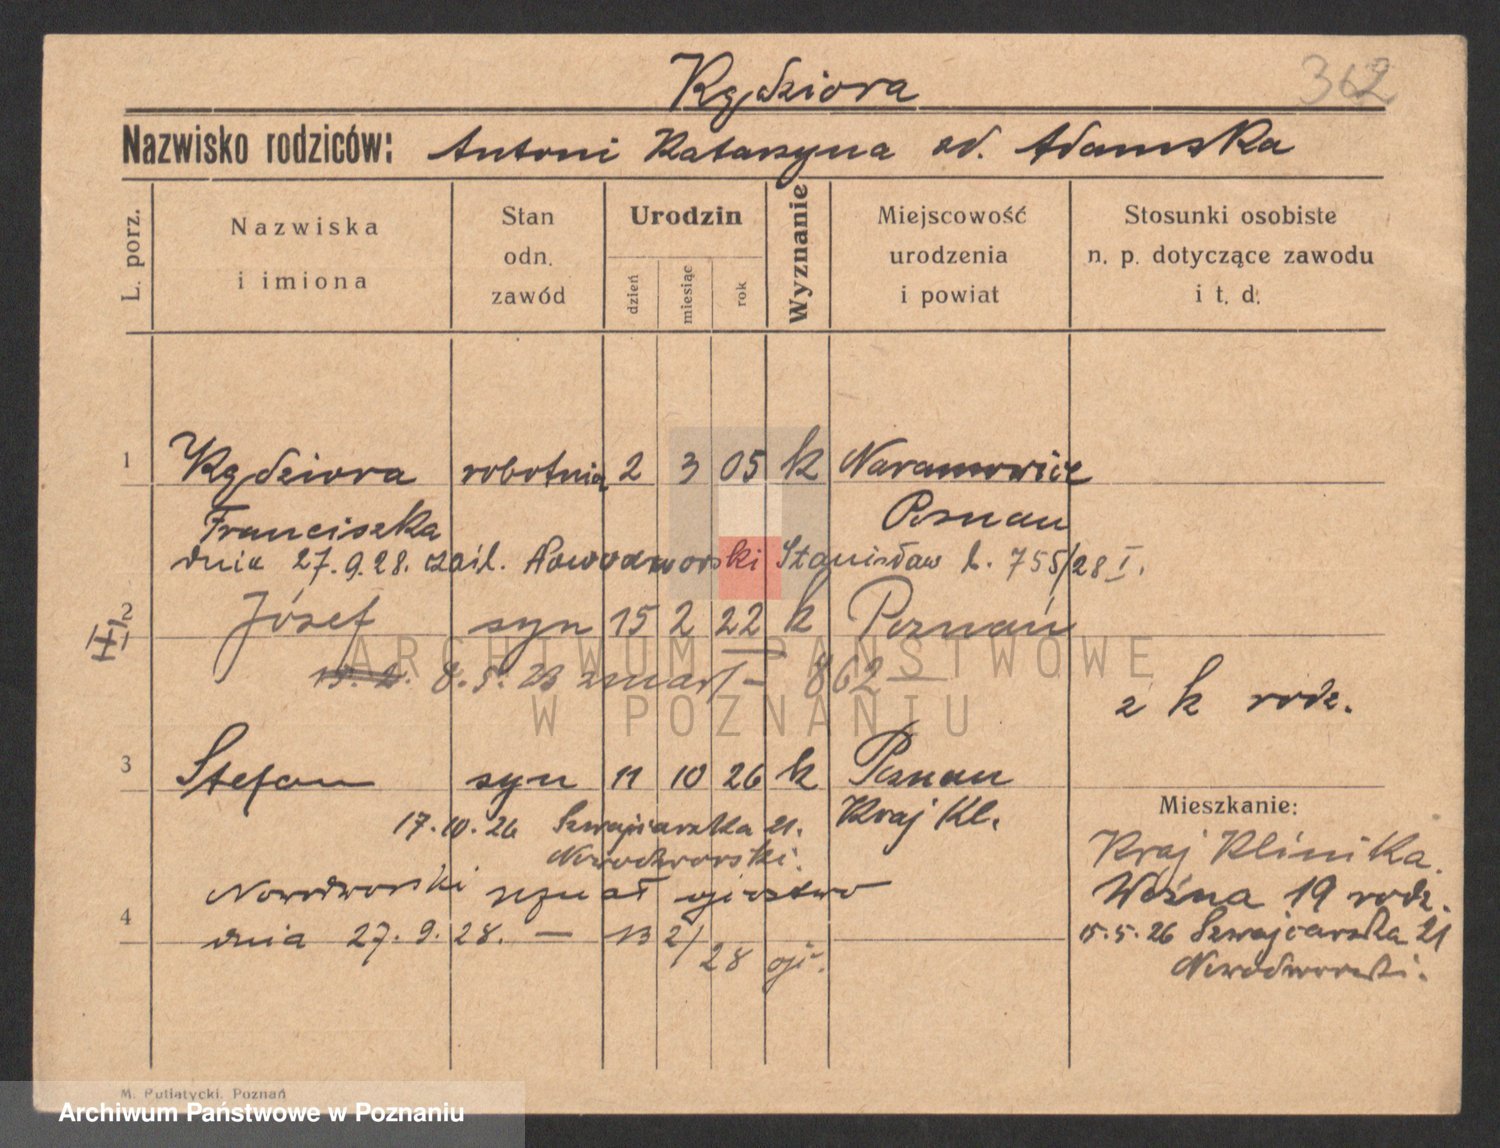 Kędziora
362
Nazwisko rodziców: Antoni Katarzyna od. Adamska
L. porz.
Nazwiska i imiona
Stan odn. zawód
Urodzin
dzień
miesiąc
rok
Wyznanie
Miejscowość urodzenia i powiat
Stosunki osobiste n. p. dotyczące zawodu i t. d.
1 Kędziora robotnica 2 3 05 k Naramowice
Franciszka Poznan
dnia 27.9.28. zaśl. Nowodworski Stanisław l. 755/28 I.
2 Józef syn 15 2 22 k Poznań
II
8.5.23 zmarł - 862 —
z k rodz.
3 Stefan syn 11 10 26 k Poznan
17.10.26 Szwajcarska 21. Kraj Kl.
Nowodworski.
Mieszkanie:
Kraj Klinika.
Woźna 19 rodz.
15.5.26 Szwajcarska 21
Nowodworski.
Nowodworski uznał ojcostwo
4 dnia 27.9.28. — 13 2/28 ojc.
M. Putiatycki, Poznań
ARCHIWUM PAŃSTWOWE
W POZNANIU
Archiwum Państwowe w Poznaniu